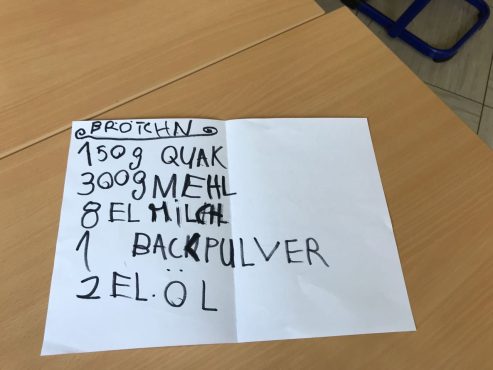 BRÖTCHN
150g QUAK
300g MEHL
8 EL MILCH
1 BACKPULVER
2 EL. ÖL